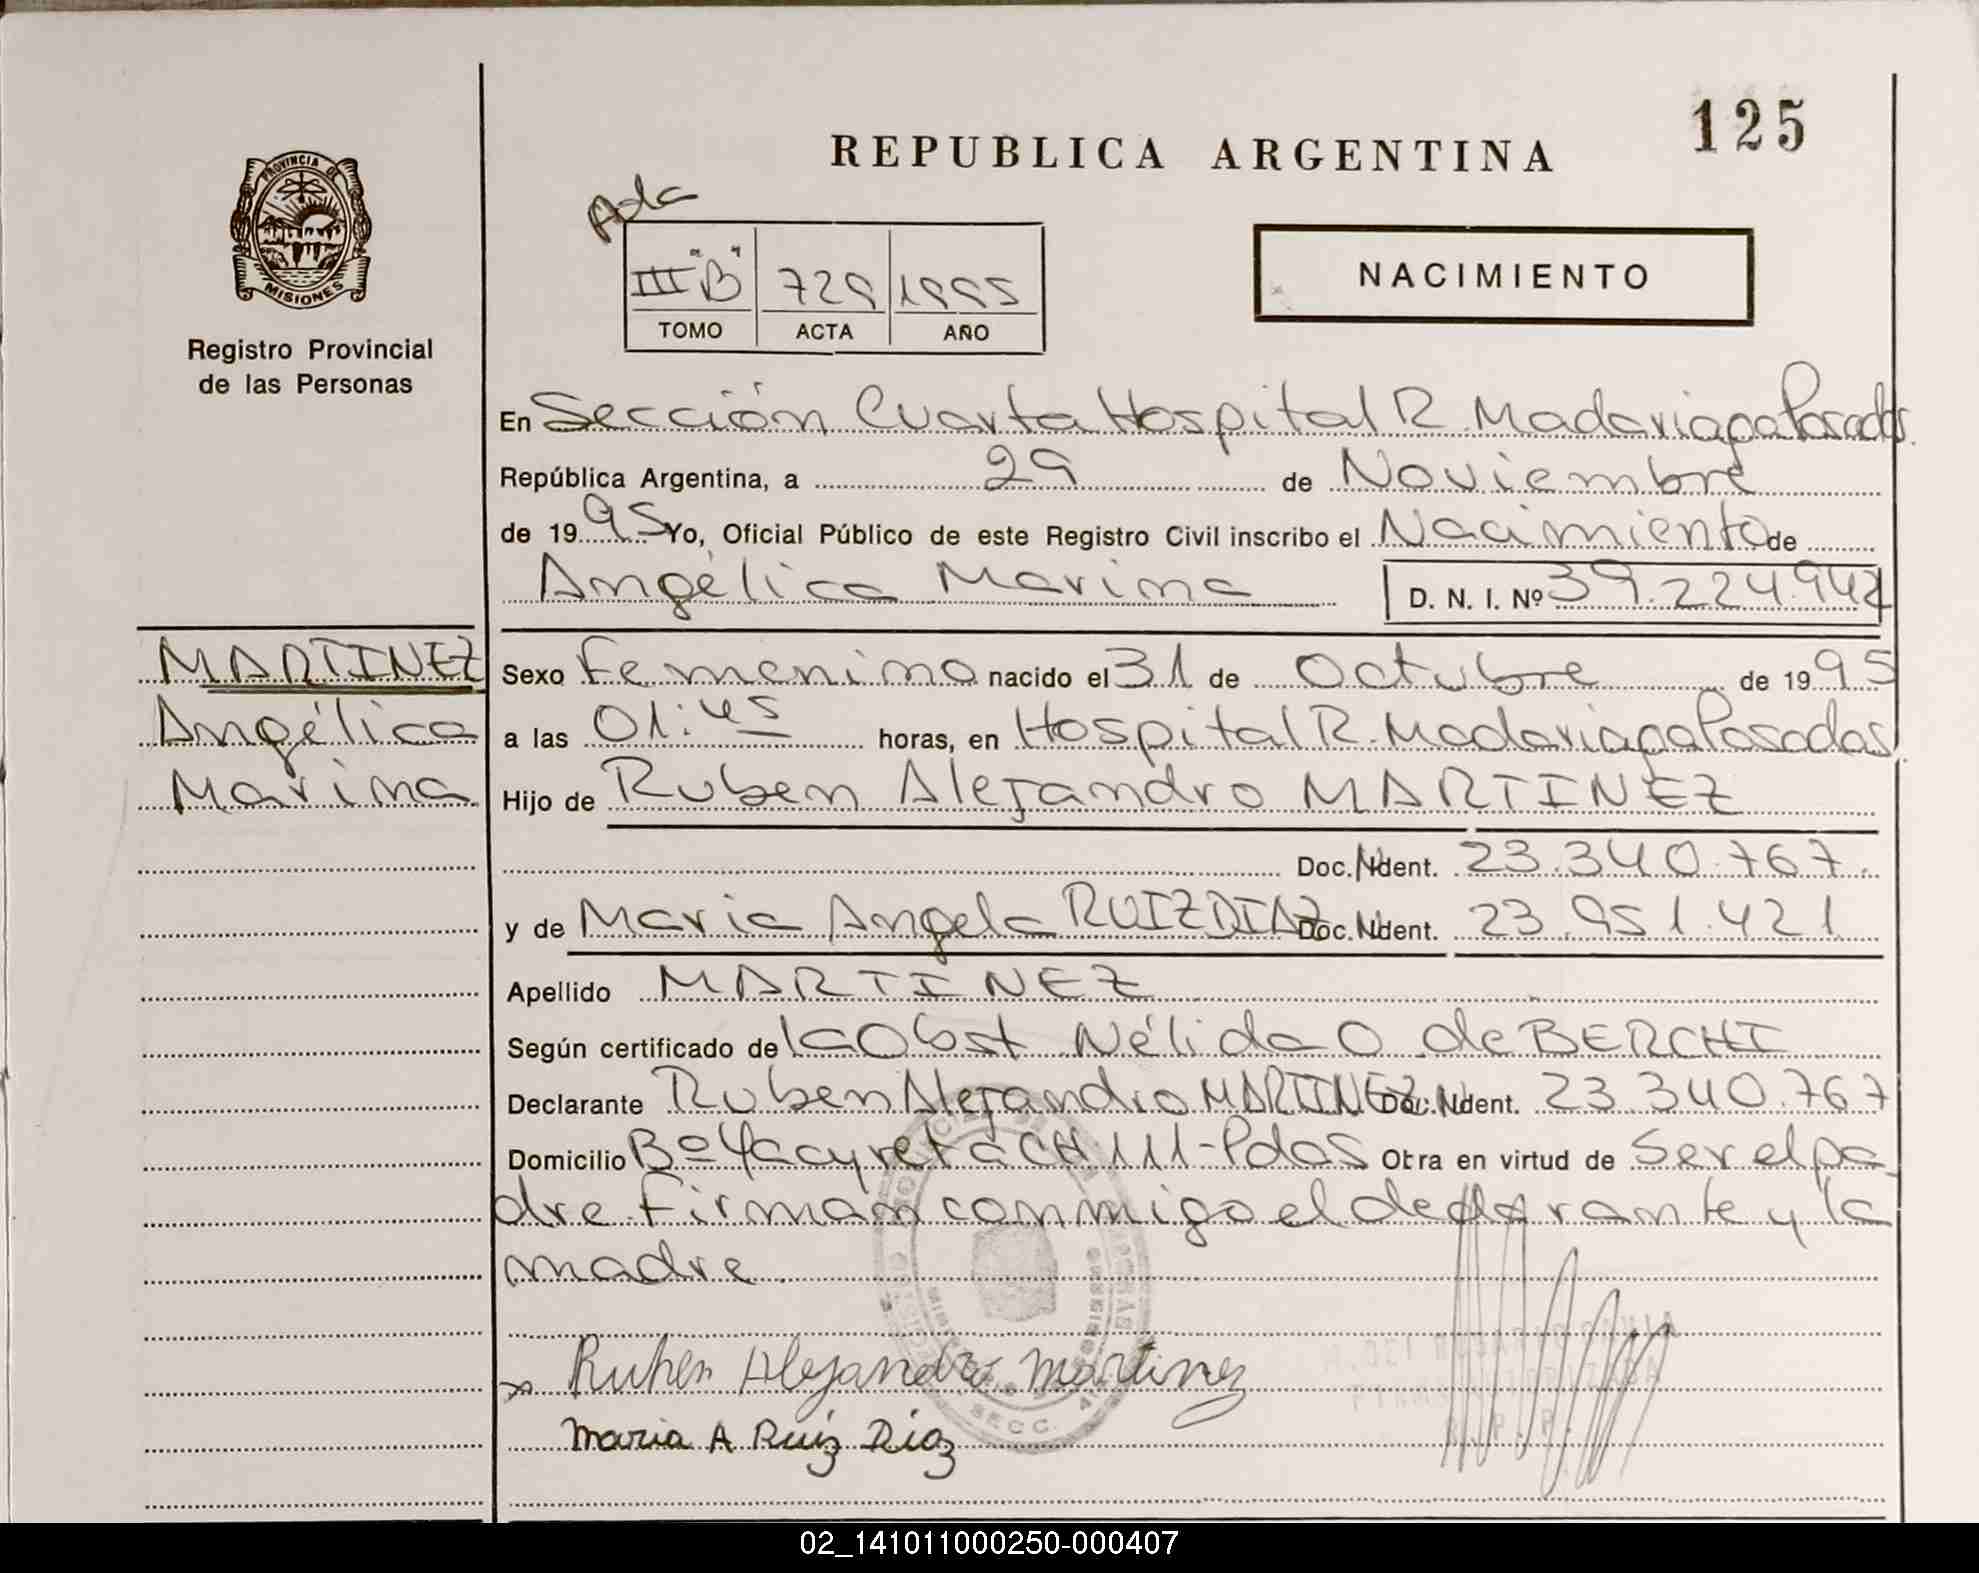 125
REPUBLICA ARGENTINA
PROVINCIA DE
MISIONES
Registro Provincial
de las Personas
Ada
III "B" 729 1995
TOMO ACTA AÑO
NACIMIENTO
En Sección Cuarta Hospital R. Madariaga Posadas.
República Argentina, a 29 de Noviembre
de 1995 Yo, Oficial Público de este Registro Civil inscribo el Nacimiento de
Angélica Marina D. N. I. Nº 39.224.942
MARTINEZ
Angélica
Marina
Sexo Femenino nacido el 31 de Octubre de 1995
a las 01:45 horas, en Hospital R. Madariaga Posadas.
Hijo de Ruben Alejandro MARTINEZ
Doc. Ident. 23.340.767.
y de Maria Angela RUIZ DIAZ Doc. Ident. 23.951.421
Apellido MARTINEZ
Según certificado de la Obst Nélida O. de BERCHI
Declarante Ruben Alejandro MARTINEZ Doc. Ident. 23.340.767
Domicilio Bº Yacyreta CH 111-Pdas Obra en virtud de Ser el pa
dre. Firman conmigo el declarante y la
madre.
x Ruben Alejandro Martinez
Maria A Ruiz Diaz
SECC. 4
02_141011000250-000407